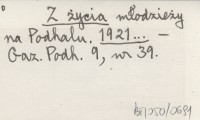 Z życia młodzieży
na Podhalu. 1921... —
Gaz. Podh. 9, nr 39.